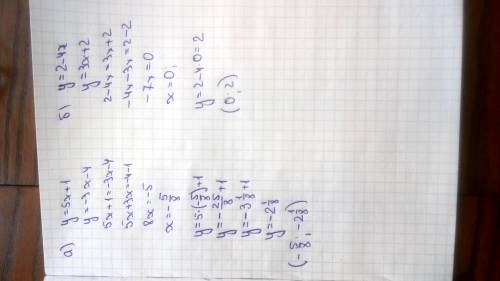 а) y=5x+1
y=-3x-4
5x+1=-3x-4
5x+3x=-4-1
8x=-5
x=-5/8
y=5·(5/8)+1
y=-25/8+1
y=-3 1/8+1
y=-2 1/8
(-5/8; -2 1/8)
б) y=2-4x
y=3x+2
2-4x=3x+2
-4x-3x=2-2
-7x=0
x=0;
y=2-4·0=2
(0; 2)